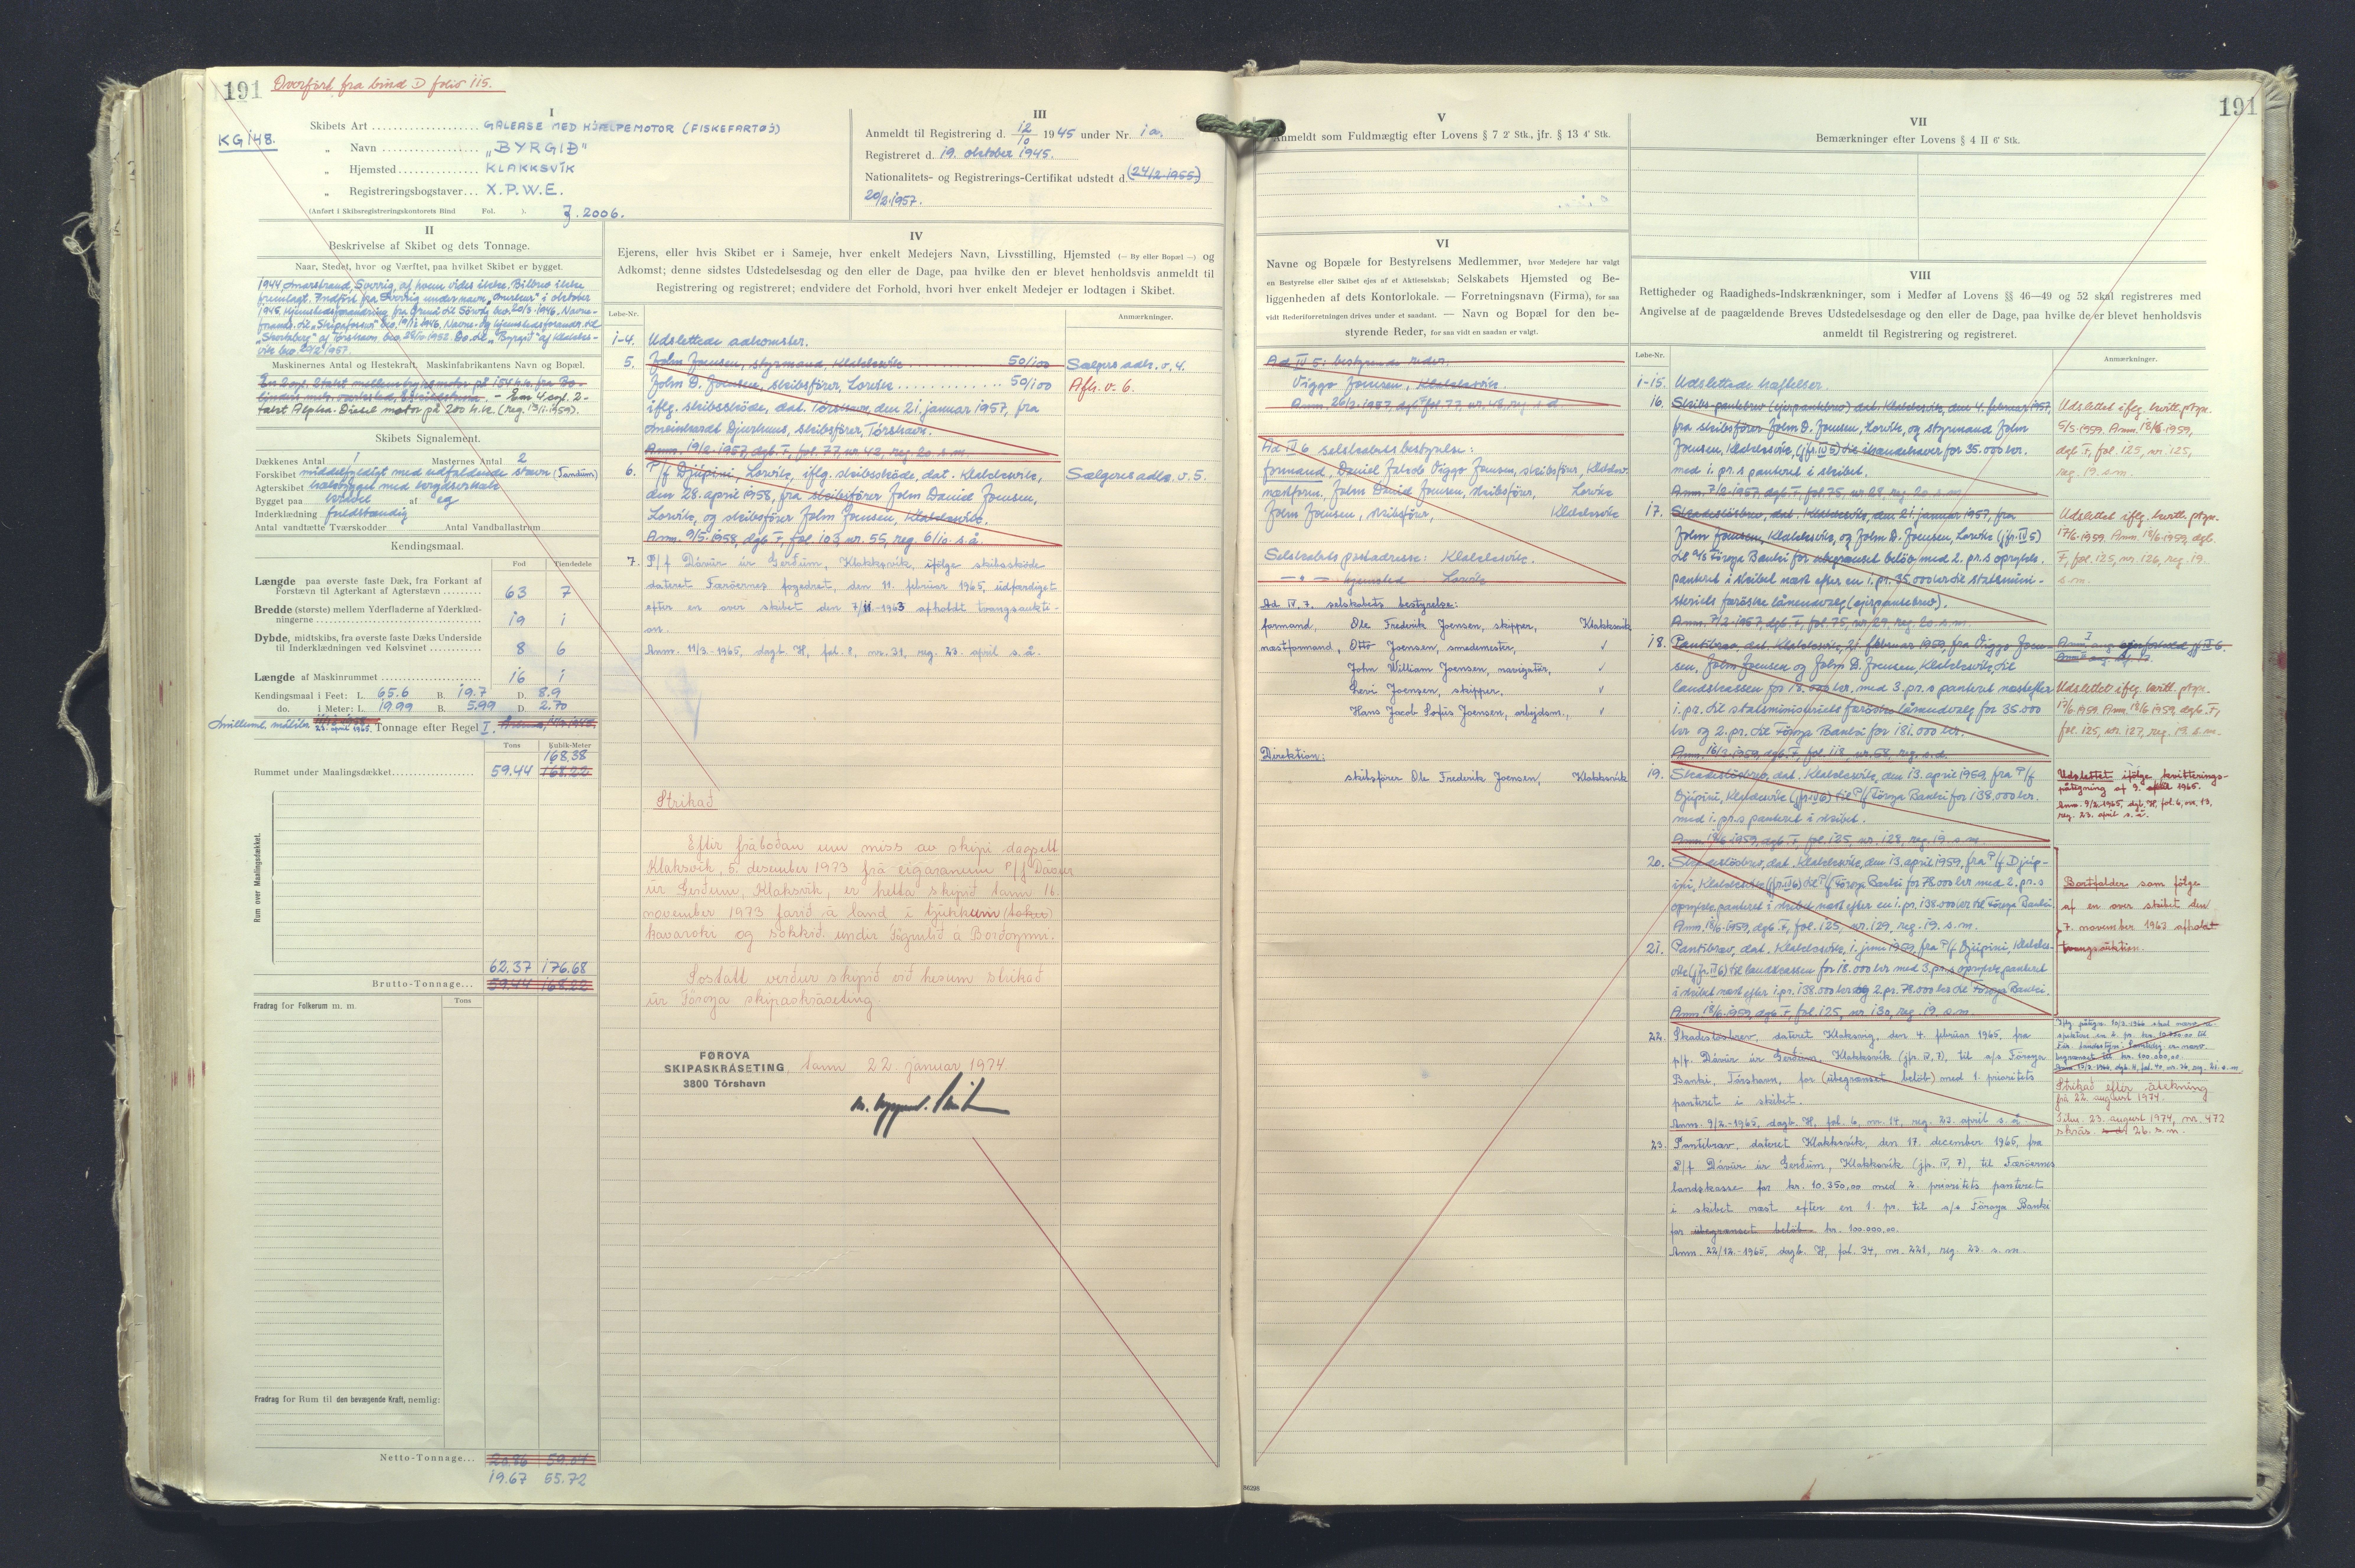 191
Overført fra bind D folio 115.
KG 148.
I
Skibets Art GALEASE MED HJÆLPEMOTOR (FISKEFARTØJ)
„ Navn „BYRGIÐ"
„ Hjemsted KLAKKSVÍK
„ Registreringsbogstaver X.P.W.E.
(Anført i Skibsregistreringskontorets Bind Fol. ). J. 2006.
III
Anmeldt til Registrering d. 12/10 1945 under Nr. 1a.
Registreret d. 19. oktober 1945.
Nationalitets- og Registrerings-Certifikat udstedt d. (24/2 1955)
20/2.1957.
II
Beskrivelse af Skibet og dets Tonnage.
Naar, Stedet, hvor og Værftet, paa hvilket Skibet er bygget.
Maskinernes Antal og Hestekraft. Maskinfabrikantens Navn og Bopæl.
- Een 4 cyl. 2-
takt Alpha-Diesel motor på 200 h.k. (reg. 13/11-1959).
Skibets Signalement.
Dækkenes Antal 1 Masternes Antal 2
Forskibet middelfyldigt med udfaldende stævn
Agterskibet
Bygget paa kravel af eg
Inderklædning fuldstændig
Antal vandtætte Tværskodder Antal Vandballastrum
Kendingsmaal.
Fod Tiendedele
Længde paa øverste faste Dæk, fra Forkant af
Forstævn til Agterkant af Agterstævn 63 7
Bredde (største) mellem Yderfladerne af Yderklæd-
ningerne 19 1
Dybde, midtskibs, fra øverste faste Dæks Underside
til Inderklædningen ved Kølsvinet 8 6
Længde af Maskinrummet 16 1
Kendingsmaal i Feet: L. 65.6 B. 19.7 D. 8.9
do. i Meter: L. 19.99 B. 5.99 D. 2.70
Tonnage efter Regel I.
Tons Kubik-Meter
168.38
Rummet under Maalingsdækket 59.44 168.22
Rum over Maalingsdækket.
62.37 176.68
Brutto-Tonnage... 59.44 168.22
Fradrag for Folkerum m. m. Tons
Fradrag for Rum til den bevægende Kraft, nemlig:
Netto-Tonnage...
19.67 55.72
IV
Ejerens, eller hvis Skibet er i Sameje, hver enkelt Medejers Navn, Livsstilling, Hjemsted (— By eller Bopæl —) og
Adkomst; denne sidstes Udstedelsesdag og den eller de Dage, paa hvilke den er blevet henholdsvis anmeldt til
Registrering og registreret; endvidere det Forhold, hvori hver enkelt Medejer er lodtagen i Skibet.
Løbe-Nr. Anmærkninger.
1-4. Udslettede adkomster.
5. John Joensen, styrmand, Klakksvík 50/100 Sælgers adk. v. 4.
John D. Joensen, skibsfører, Lorvík 50/100 Afh. v. 6.
iflg. skibsskøde, dat. Tórshavn, den 21. januar 1957, fra
Djurhuus, skibsfører, Tórshavn.
Anm. 19/2-1957, dagb. F, fol. 77, nr. 42, reg. 20. s.m.
6. P/f Djúpini, Lorvík, iflg. skibsskøde, dat. Klakksvík, Sælgeres adk. v. 5.
den 28. april 1958, fra skibsfører John Daniel Joensen,
Lorvík, og skibsfører John Joensen, Klakksvík.
Anm. 9/5-1958, dgb. F, fol. 103, nr. 55, reg. 6/10. s.å.
7. P/f Dávur úr Gerðum, Klakksvík, ifølge skibsskøde
dateret Færöernes fogedret, den 11. februar 1965, udfærdiget
efter en over skibet den 7/11-1963 afholdt tvangsaukti-
on.
Anm. 11/3-1965, dagb. H, fol. 8, nr. 31, reg. 23. april s.å.
Strikað
Eftir fráboðan um miss av skipi dagsett
Klaksvík, 5. desember 1973 frá eigaranum P/f Dávur
úr Gerðum, Klaksvík, er hetta skipið tann 16.
november 1973 farið á land í tjúkkum (toku)
kavaroki og sokkið undir Fögrulíð á Borðoynni.
Sostatt verður skipið við hesum strikað
úr Föroya skipaskráseting.
FØROYA
SKIPASKRÁSETING, tann 22. januar 1974.
3800 Tórshavn
191
V
Anmeldt som Fuldmægtig efter Lovens § 7 2' Stk., jfr. § 13 4' Stk.
VI
Navne og Bopæle for Bestyrelsens Medlemmer, hvor Medejere har valgt
en Bestyrelse eller Skibet ejes af et Aktieselskab; Selskabets Hjemsted og Be-
liggenheden af dets Kontorlokale. — Forretningsnavn (Firma), for saa
vidt Rederiforretningen drives under et saadant. — Navn og Bopæl for den be-
styrende Reder, for saa vidt en saadan er valgt.
Ad IV 5: bestyrende reder.
Viggo Joensen, Klakksvík.
Anm. 20/2-1957, dgb. F fol. 77, nr. 43, reg. s.d.
Ad IV 6 selskabets bestyrelse:
formand, Daniel Jakob Viggo Joensen, skibsfører, Klaksv.
næstform. John Daniel Joensen, skibsfører, Lorvík
John Joensen, skibsfører, Klakksvík
Selskabets postadresse: Klakksvík.
— " — hjemsted Lorvík
Ad IV. 7. selskabets bestyrelse:
formand, Ole Frederik Joensen, skipper, Klakksvík
næstformand, Otto Joensen, smedemester, "
John William Joensen, navigatør, "
Levi Joensen, skipper, "
Hans Jacob Sofus Joensen, arbejdsm., "
Direktion:
skibsfører Ole Frederik Joensen, Klakksvík
VII
Bemærkninger efter Lovens § 4 II 6' Stk.
VIII
Rettigheder og Raadigheds-Indskrænkninger, som i Medfør af Lovens §§ 46—49 og 52 skal registreres med
Angivelse af de paagældende Breves Udstedelsesdage og den eller de Dage, paa hvilke de er blevet henholdsvis
anmeldt til Registrering og registreret.
Løbe-Nr. Anmærkninger.
1-15. Udslettede hæftelser.
16. Skibs-pantebrev (ejerpantebrev) dat. Klakksvík, den 4. februar 1957,
fra skibsfører John D. Joensen, Lorvík, og styrmand John
Joensen, Klakksvík, (jfr. IV 5) til ihændehaver for 35.000 kr.
med 1. pr.s panteret i skibet.
Anm. 7/2-1957, dgb. F, fol. 75, nr. 28, reg. 20. s.m.
Udslettet iflg. kvitt. ptgn.
5/5 1959. Anm. 18/6 1959,
dgb. F, fol. 125, nr. 125,
reg. 19. s.m.
17. Skadesløsbrev, dat. Klakksvík, den 21. januar 1957, fra
John Joensen, Klakksvík, og John D. Joensen, Lorvík (jfr. IV 5)
til A/s Føroya Banki for ubegrænset beløb med 2. pr.s oprykk.
panteret i skibet næst efter en 1. pr. 35.000 kr til statsmini-
steriets færøske låneudvalg (ejerpantebrev).
Anm. 7/2-1957, dgb. F, fol. 75, nr. 29, reg. 20. s.m.
Udslettet iflg. kvitt. ptgn.
17/6-1959. Anm. 18/6 1959, dgb.
F, fol. 125, nr. 126, reg. 19.
s.m.
18. Pantibræv, dat. Klakksvík, 21. februar 1959, fra Viggo Joen-
sen, John Joensen og John D. Joensen, Klakksvík, til
landskassen for 18.000 kr. med 3. pr.s panteret næst efter
1. pr. til statsministeriets færøske låneudvalg for 35.000
kr og 2. pr. til Føroya Banki for 181.000 kr.
Anm. 16/3-1959, dgb. F, fol. 118, nr. 58, reg. s.d.
Udslettet iflg. kvitt. ptgn.
17/6 1959. Anm. 18/6 1959, dgb. F,
fol. 125, nr. 127, reg. 19. s.m.
19. Skadesløsbrev, dat. Klakksvík, den 13. april 1959, fra P/f
Djúpini, Klakksvík (jfr. IV 6) til P/f Føroya Banki for 138.000 kr.
med 1. pr.s panteret i skibet.
Anm. 18/6-1959, dgb. F, fol. 125, nr. 128, reg. 19. s.m.
Udslettet ifølge kvitterings-
påtegning af 9. 1965.
Anm. 9/2-1965, dgb. H, fol. 6, nr. 13,
reg. 23. april s.å.
20. Skadesløsbrev, dat. Klakksvík, den 13. april 1959, fra P/f Djúp-
ini, Klakksvík (jfr. IV 6) til P/f Føroya Banki for 78.000 kr med 2. pr.s
oprykk. panteret i skibet næst efter en 1. pr. 138.000 kr til Føroya Banki.
Anm. 18/6-1959, dgb. F, fol. 125, nr. 129, reg. 19. s.m.
21. Pantibræv, dat. Klakksvík, 1. juni 1959, fra P/f Djúpini, Klakks-
vík (jfr. IV 6) til landskassen for 18.000 kr med 3. pr.s oprykk. panteret
i skibet næst efter 1. pr. 138.000 kr og 2. pr. 78.000 kr til Føroya Banki.
Anm. 18/6-1959, dgb. F, fol. 125, nr. 130, reg. 19. s.m.
Bortfalder som følge
af en over skibet den
7. november 1963 afholdt
tvangsauktion.
22. Skadesløsbrev, dateret Klaksvig, den 4. februar 1965, fra
p/f. Dávur úr Gerðum, Klakksvík (jfr. IV, 7), til a/s Føroya
Banki, Tórshavn, for (ubegrænset beløb) med 1. prioritets
panteret i skibet.
Anm. 9/2.-1965, dagb. H, fol. 6, nr. 14, reg. 23. april s.å.
Strikað eftir átekning
frá 22. august 1974.
23. august 1974, nr. 472
skrás. 26. s.m.
23. Pantibræv, dateret Klakksvík, den 17. december 1965, fra
P/f Dávur úr Gerðum, Klakksvík (jfr. IV, 7), til Færöernes
landskasse for kr. 10.350,00 med 2. prioritets panteret
i skibet næst efter en 1. pr. til a/s Føroya Banki
for ubegrænset beløb kr. 100.000,00.
Anm. 22/12.-1965, dagb. H, fol. 34, nr. 221, reg. 23. s.m.